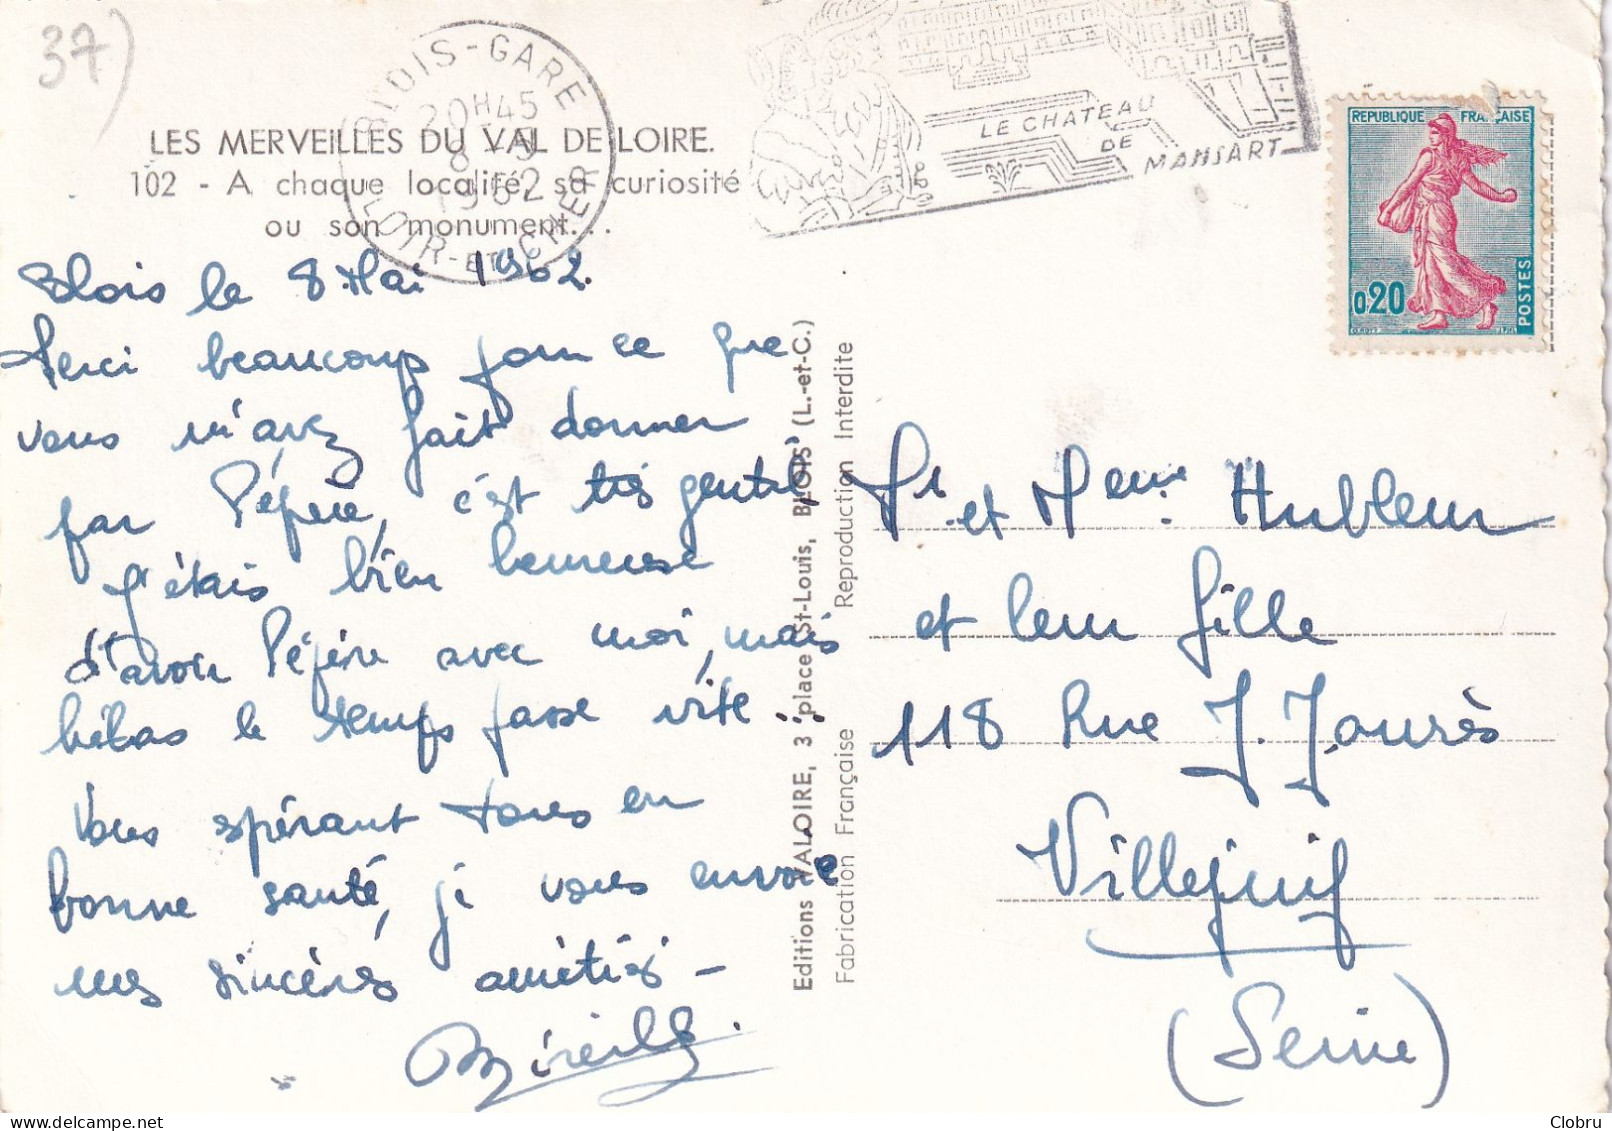 37)
BLOIS-GARE
20H45
8-5
1962
LOIR-ET-CHER
LE CHATEAU
DE
MANSART
REPUBLIQUE FRANÇAISE
0,20
POSTES
LES MERVEILLES DU VAL DE LOIRE.
102 - A chaque localité, sa curiosité
ou son monument...
Blois le 8 Mai 1962.
Merci beaucoup pour ce que
vous m'avez fait donner
par Pépère, c'est très gentil,
J'étais bien heureuse
d'avoir Pépère avec moi, mais
hélas le temps passe vite...
Vous espérant tous en
bonne santé, je vous envoie
mes sincères amitiés -
Mireille.
Editions VALOIRE, 3 place St-Louis, BLOIS (L.-et-C.)
Fabrication Française Reproduction Interdite
Mr et Mme Hubleur
et leur fille
118 Rue J. Jaurès
Villejuif
(Seine)
delcampe.net
Clobru